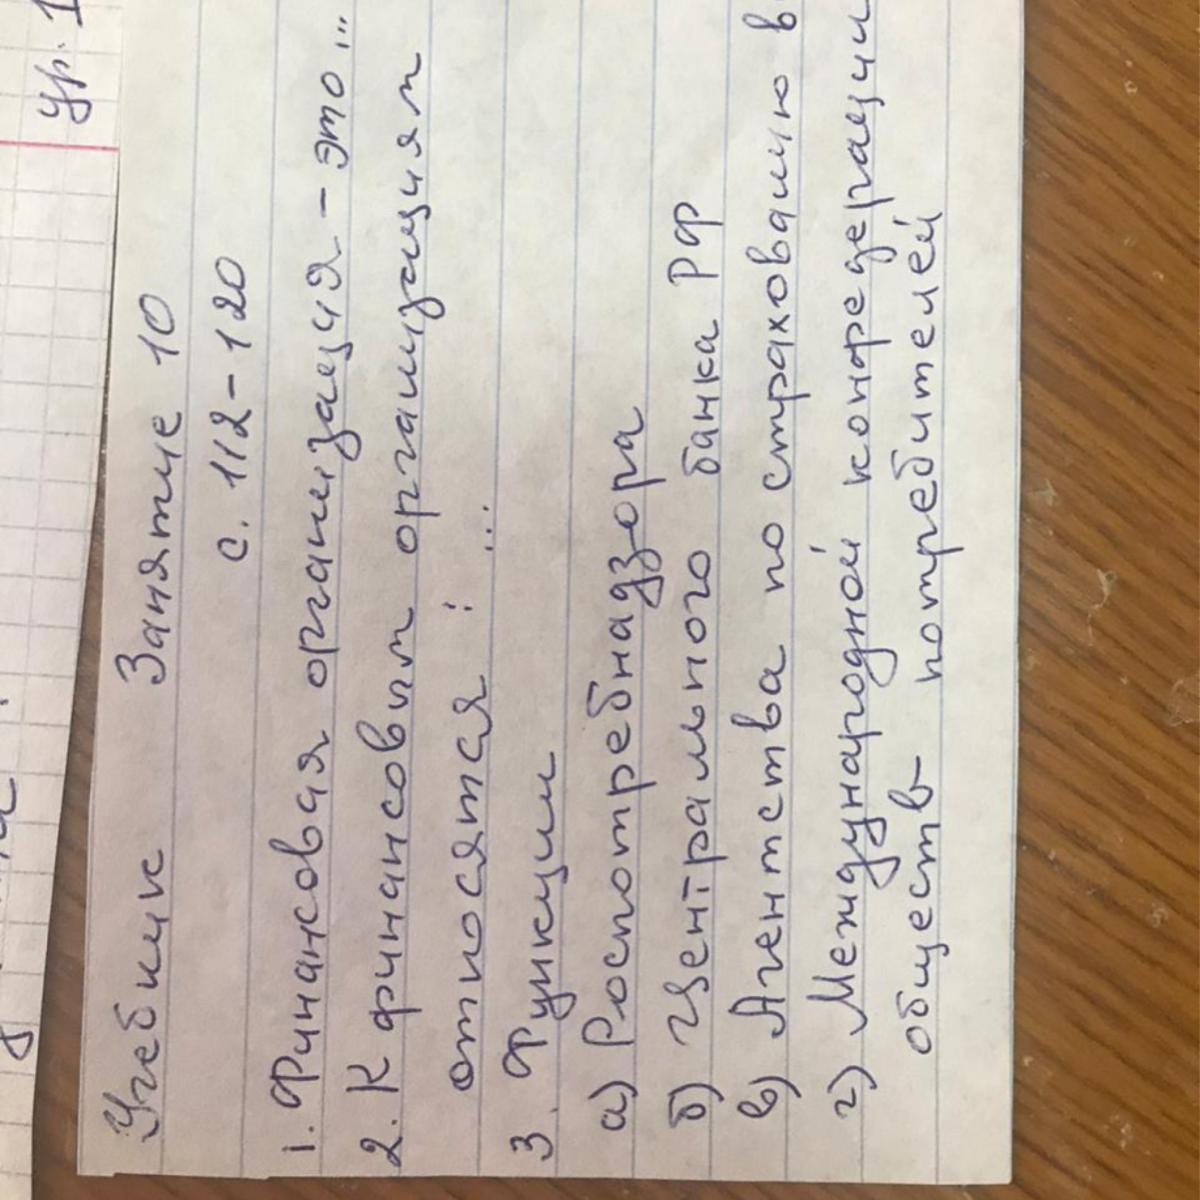 ур. 1
Учебник Занятие 10
с. 112-120
1. Финансовая организация - это...
2. К финансовым организациям
относятся : ...
3. Функции
а) Роспотребнадзора
б) Центрального банка РФ
в) Агентства по страхованию в
г) Международной конфедерации
обществ потребителей